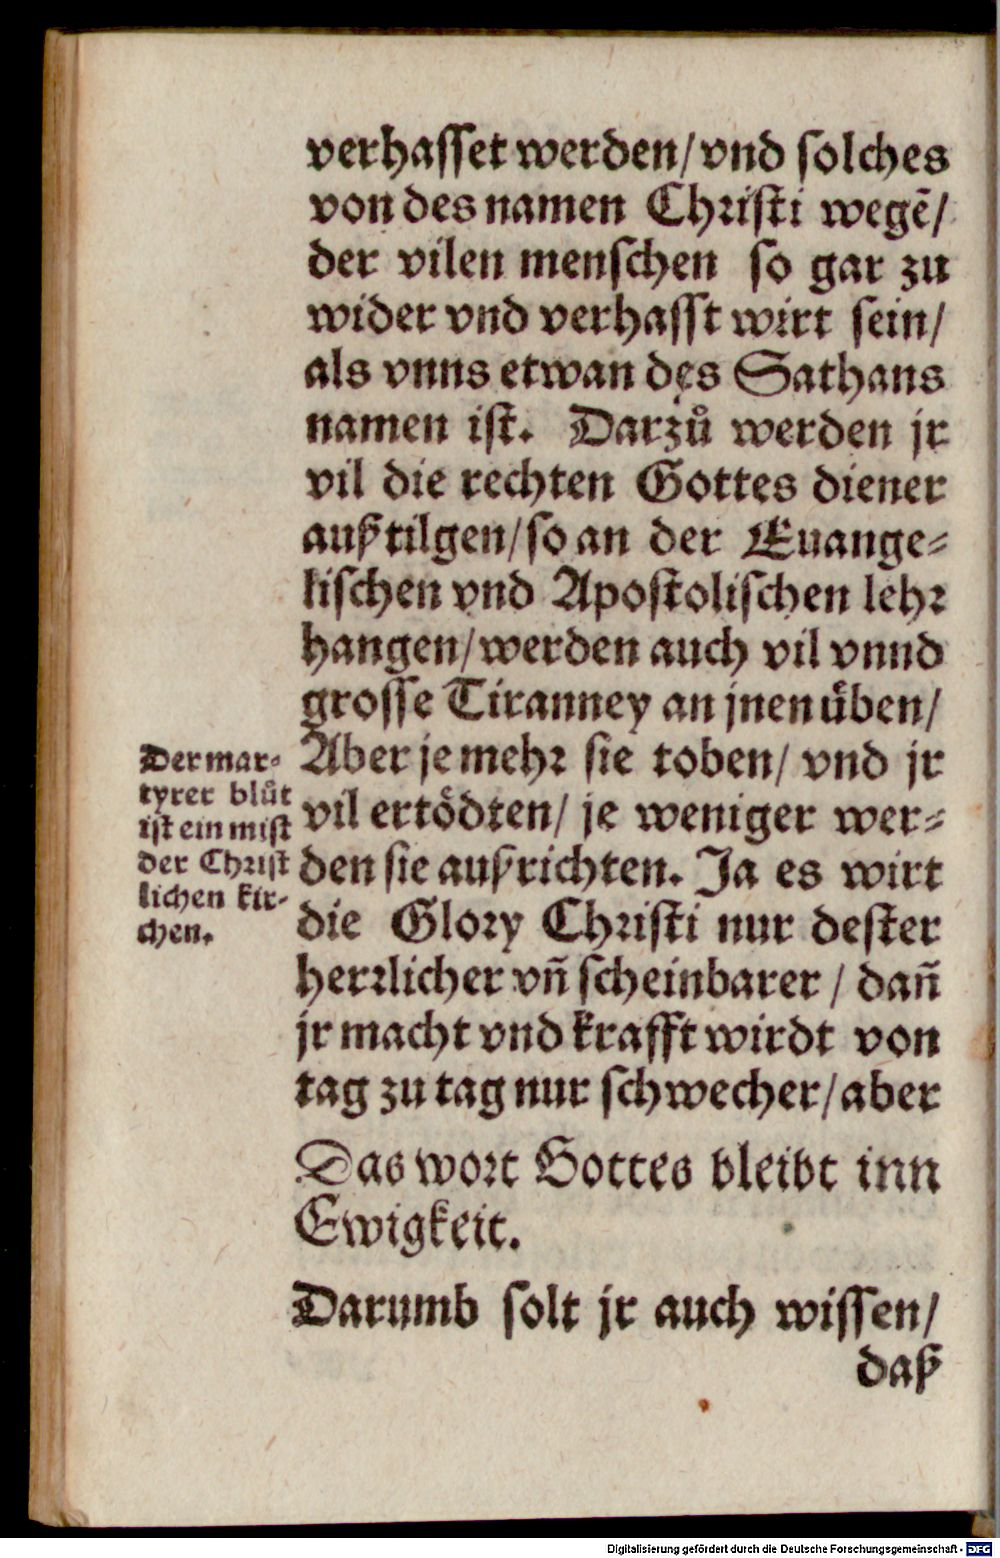 verhasset werden/ vnd solches
von des namen Christi wegẽ/
der vilen menschen so gar zu
wider vnd verhasst wirt sein/
als vnns etwan des Sathans
namen ist. Darzů werden jr
vil die rechten Gottes diener
außtilgen/ so an der Euange-
lischen vnd Apostolischen lehr
hangen/ werden auch vil vnnd
grosse Tiranney an jnen uͤben/
Aber je mehr sie toben/ vnd jr
vil ertoͤdten/ je weniger wer-
den sie außrichten. Ja es wirt
die Glory Christi nur dester
herrlicher vñ scheinbarer / dañ
jr macht vnd krafft wirdt von
tag zu tag nur schwecher/ aber
Das wort Gottes bleibt inn
Ewigkeit.
Darumb solt jr auch wissen/
daß
Der mar-
tyrer blůt
ist ein mist
der Christ
lichen kir-
chen.
Digitalisierung gefördert durch die Deutsche Forschungsgemeinschaft - DFG